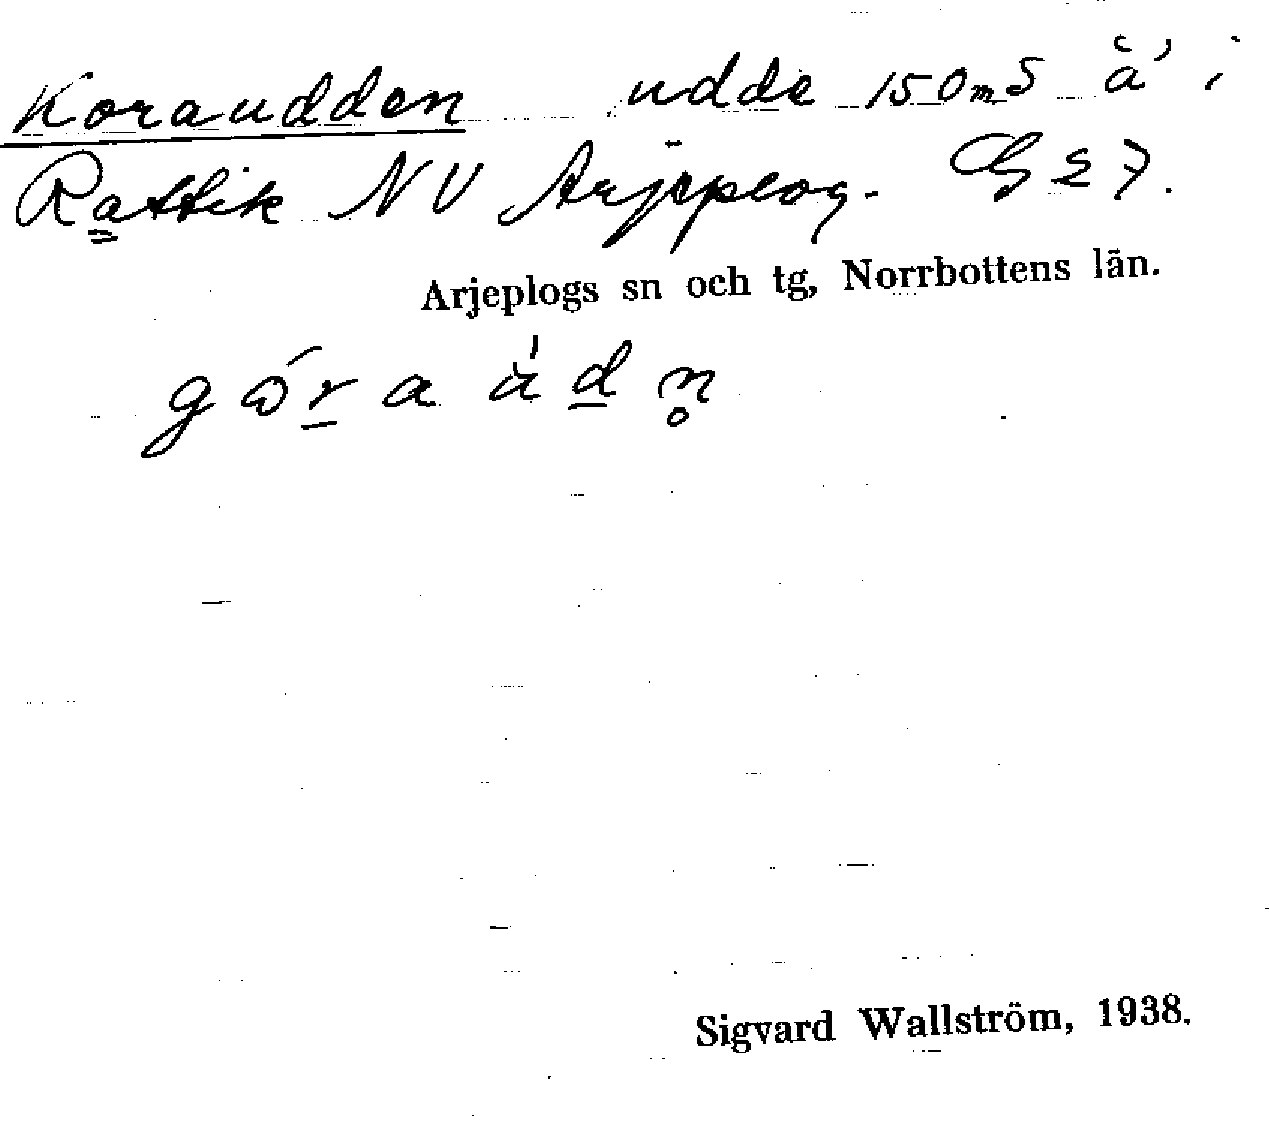 Koraudden udde 150 m S å i
Rattik NV Arjeplog. G 27.
Arjeplogs sn och tg, Norrbottens län.
Sigvard Wallström, 1938.